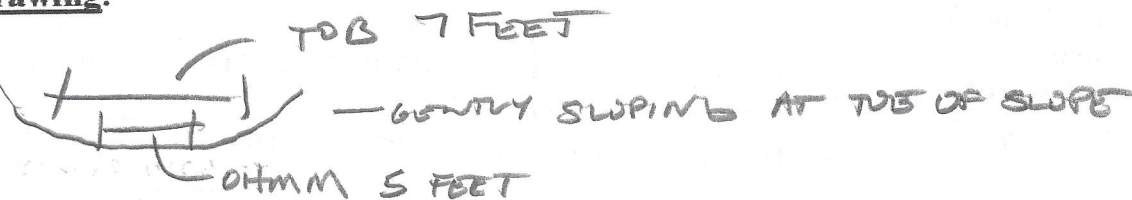 rawing:
TOB 7 FEET
— GENTLY SLOPING AT TOE OF SLOPE
OHMM 5 FEET